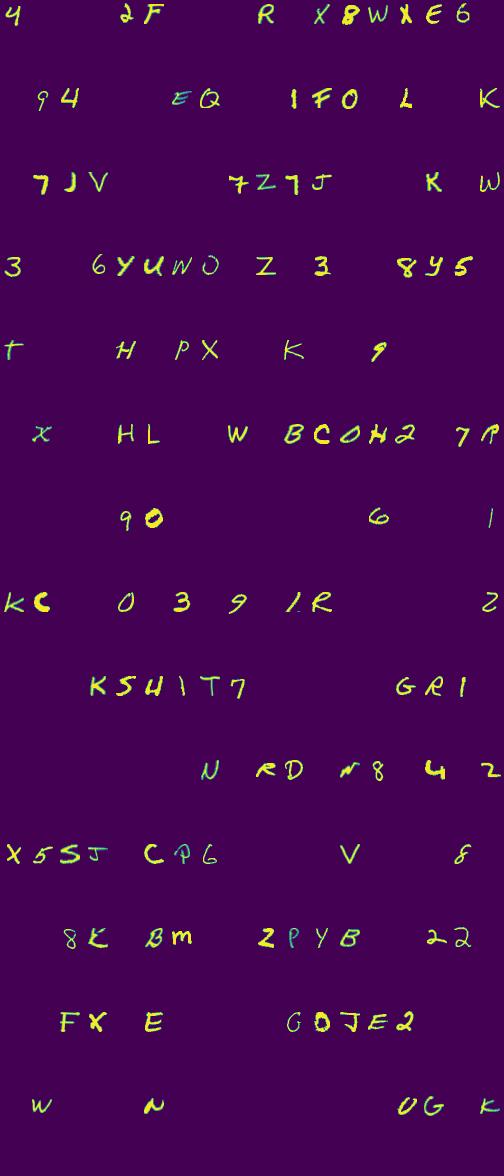 4 2F R X8WXE6
94 EQ 1F0 L K
7JV 7Z7J K W
3 6YUWO Z 3 8Y5
T H PX K 9
X HL W BCOH2 7R
90 6 1
KC 0 3 9 1R 2
K5H1T7 GR1
N RD N8 4 2
X5SJ CP6 V 8
8E BM ZPYB 22
FX E GOJE2
W N 0G K